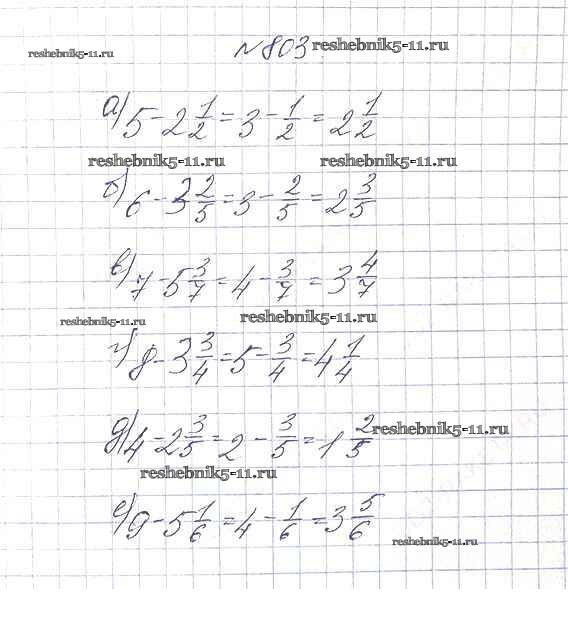 №803 reshebnik5-11.ru
reshebnik5-11.ru
а) 5 - 2 1/2 = 3 - 1/2 = 2 1/2
reshebnik5-11.ru reshebnik5-11.ru
б) 6 - 3 2/5 = 3 - 2/5 = 2 3/5
в) 7 - 5 3/7 = 4 - 3/7 = 3 4/7
reshebnik5-11.ru reshebnik5-11.ru
г) 8 - 3 3/4 = 5 - 3/4 = 4 1/4
д) 4 - 2 3/5 = 2 - 3/5 = 1 2/5 reshebnik5-11.ru
reshebnik5-11.ru
е) 9 - 5 1/6 = 4 - 1/6 = 3 5/6
reshebnik5-11.ru